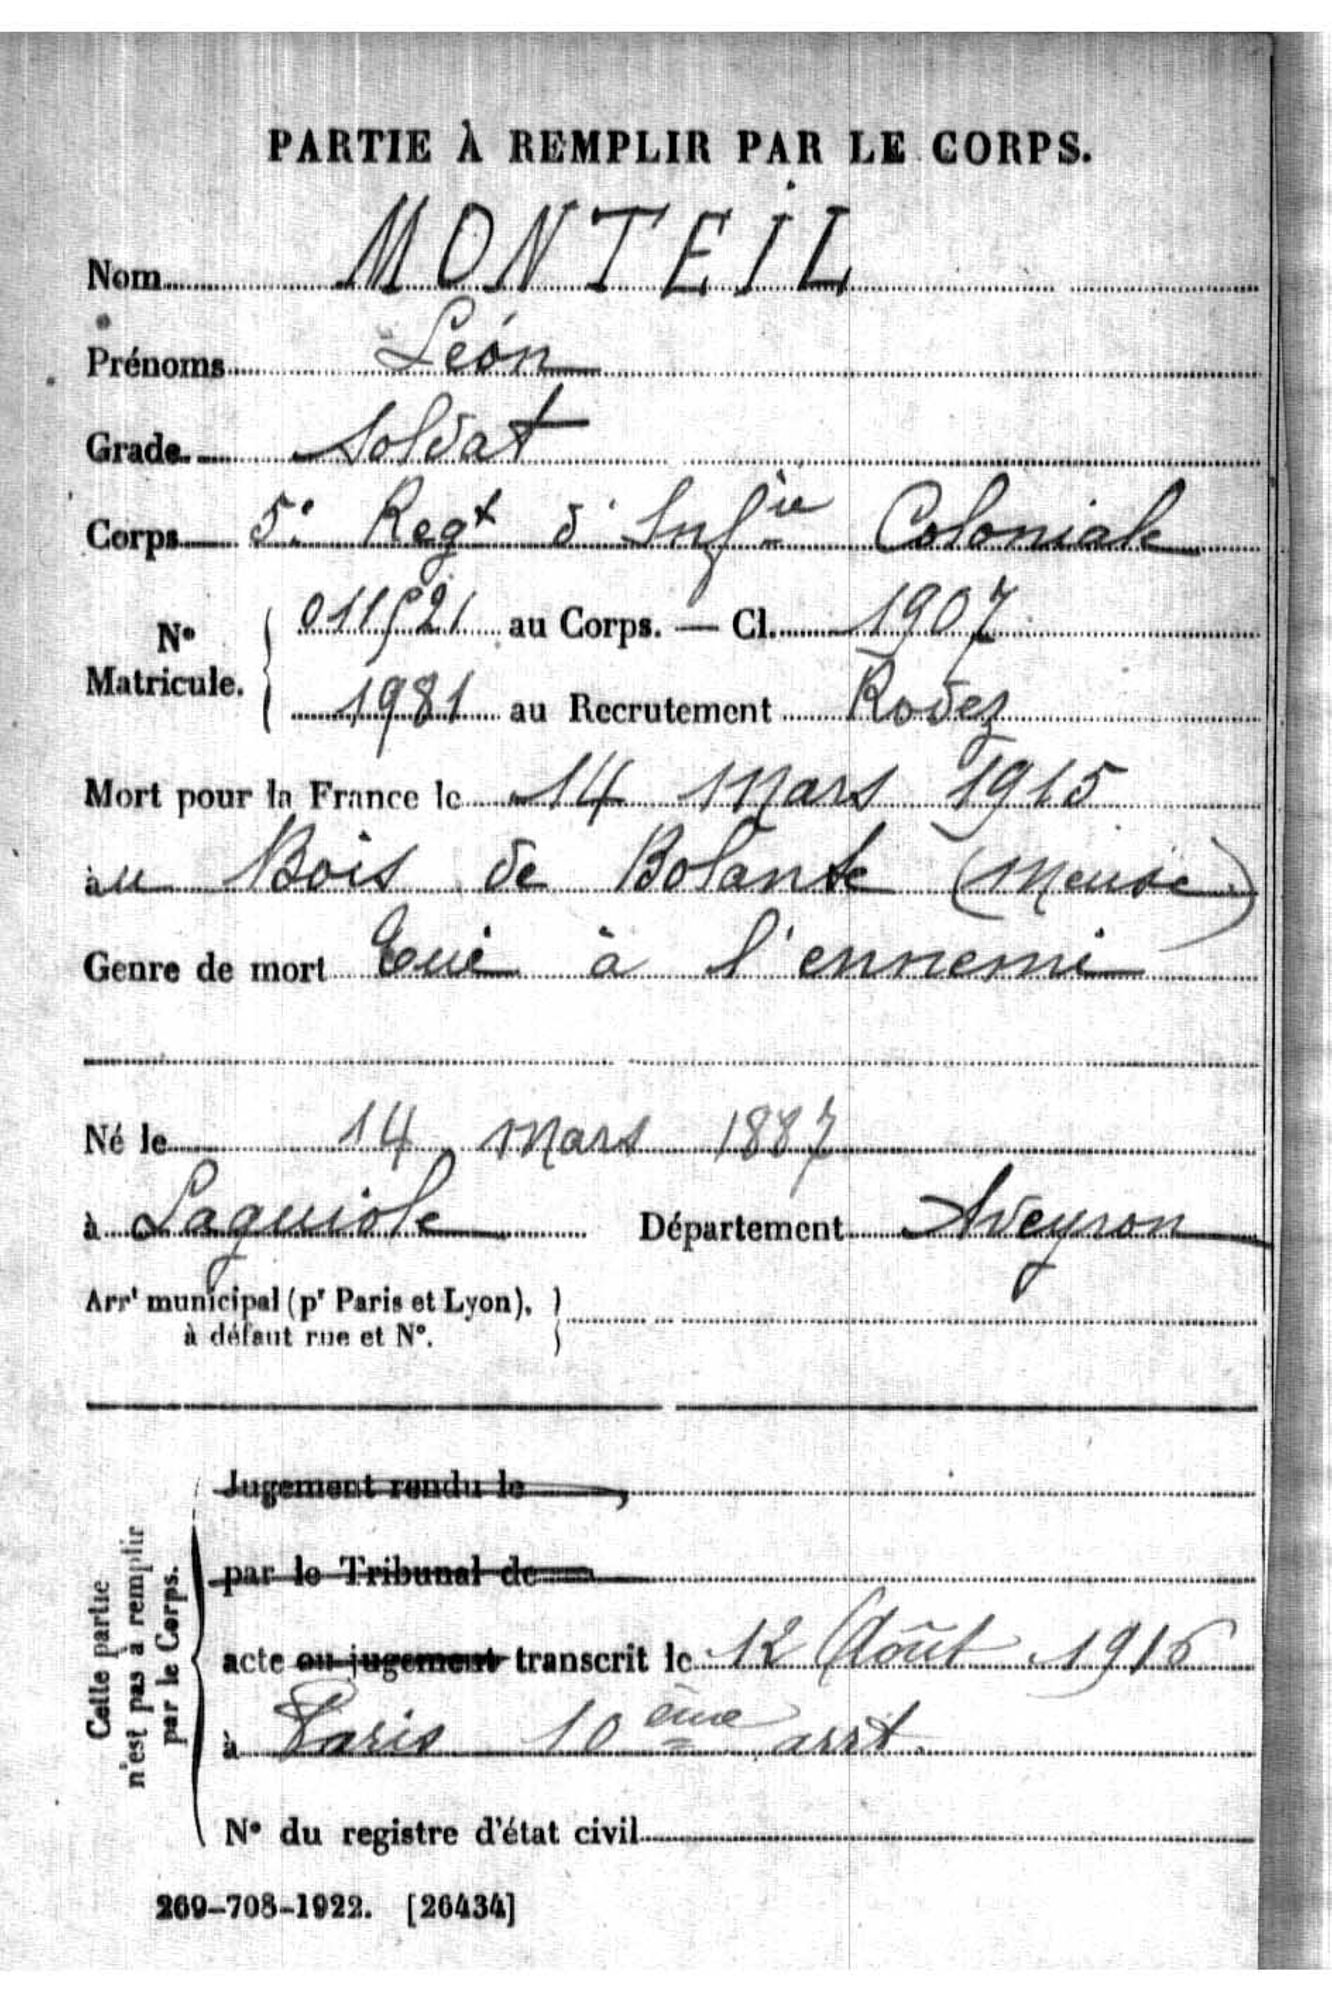 PARTIE À REMPLIR PAR LE CORPS.
Nom MONTEIL
Prénoms Léon
Grade Soldat
Corps 5e Regt d'Infie Coloniale
N° Matricule. 011521 au Corps. — Cl. 1907
1981 au Recrutement Rodez
Mort pour la France le 14 Mars 1915
au Bois de Bolante (Meuse)
Genre de mort Tué à l'ennemi
Né le 14 Mars 1887
à Laguiole Département Aveyron
Arrt municipal (pr Paris et Lyon),
à défaut rue et N°.
Cette partie
n'est pas à remplir
par le Corps.
Jugement rendu le
par le Tribunal de
acte ou jugement transcrit le 12 Août 1916
à Paris 10ème arrt.
N° du registre d'état civil
269-708-1922. [26434]